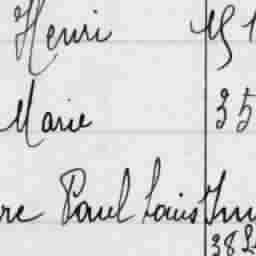 Henri
Marie 35
re Paul Louis
38